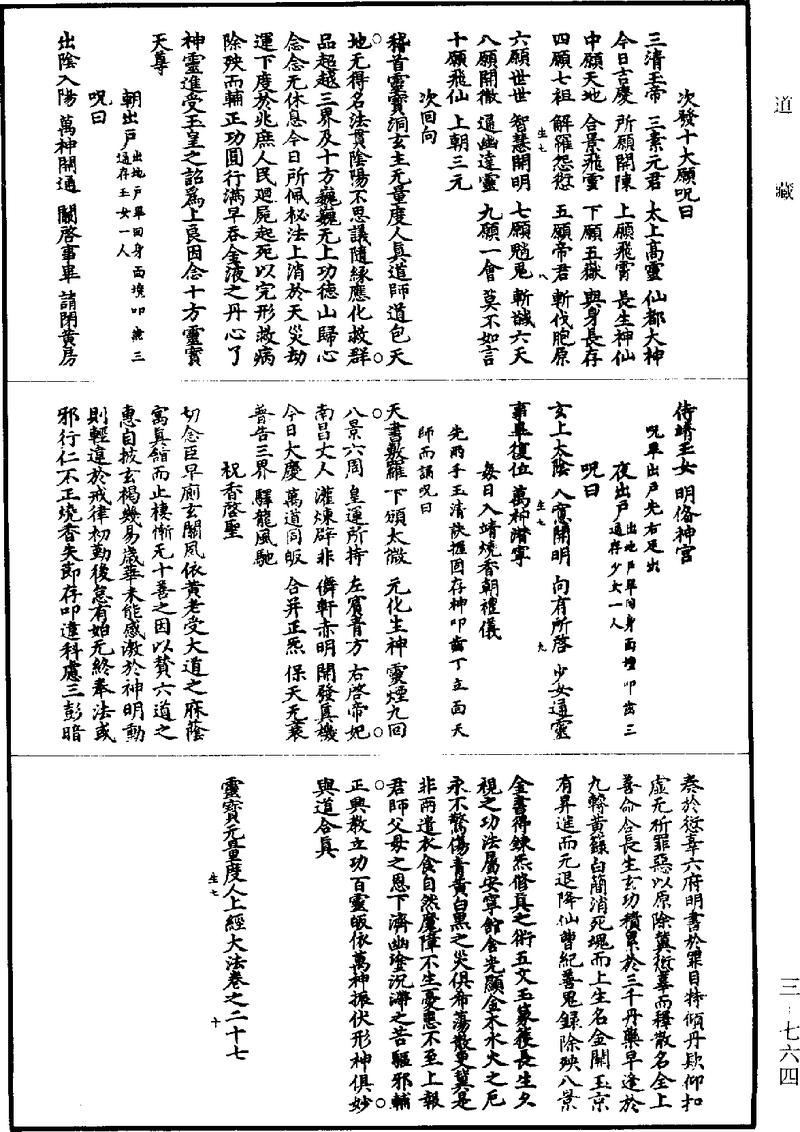 道藏
次發十大願呪曰
三清玉帝　三素元君　太上高靈　仙都大神
今日吉慶　所願開陳　上願飛霄　長生神仙
中願天地　合景飛靈　下願五嶽　與身長存
四願七祖　解羅怨愆　五願帝君　斬伐胞原
六願世世　智慧開明　七願魈鬼　斬馘六天
八願開徹　通幽達靈　九願一會　莫不如言
十願飛仙　上朝三元
次回向
稽首靈寶洞玄主无量度人真道師道包天
地无得名法貫陰陽不思議隨緣應化救群
品超越三界及十方巍巍无上功德山歸心
念念无休息今日所佩祕法上消於天災劫
運下度於兆庶人民廻屍起死以完形救病
除殃而輔正功圓行滿早吞金液之丹心了
神靈進受玉皇之詔為上良因念十方靈寶
天尊
朝出戶出地戶畢回身面境叩齒三通存玉女一人
呪曰
出陰入陽　萬神開通　關啓事畢　請閉黃房
侍靖玉女　明俻神宮
呪畢出戶先右足出
夜出戶出地戶畢回身面壇叩齒三通存少女一人
呪曰
玄上太陰　八窓開明　向有所啓　少女通靈
事畢復位　萬神潛寧
每日入靖燒香朝禮儀
先兩手玉清訣握固存神叩齒丁立面天
師而誦呪曰
天書敷羅　下頒太微　元化生神　靈煙九回
八景六周　皇運所持　左賓青方　右啓帝妃
南昌丈人　灌煉辟非　僻軒赤明　開發真機
今日大慶　萬道同皈　合并正炁　保天无衰
普告三界　驛龍風馳
祝香啓聖
切念臣早廁玄關夙依黃老受大道之庥蔭
寓真緇而止棲慚无十善之因以贊六道之
惠自披玄褐幾易歲華未能感激於神明動
則輕違於戒律初勤後怠有始无終奉法或
邪行仁不正燒香失節存叩違科慮三彭暗
奏於愆辜六府明書於罪目特傾丹欵仰扣
虛无祈罪惡以原除冀愆辜而釋散名全上
善命合長生玄功積累於三千丹藥早逢於
九轉黃籙白簡消死魂而上生名金闕玉京
有昇進而无退降仙曹紀善鬼錄除殃八景
金書得鍊炁修真之術五文玉篆獲長生久
視之功法屬安寧館舍光顯金木水火之厄
永不驚傷青黃白黑之災俱希蕩散更冀是
非兩遣衣食自然魔障不生憂患不至上報
君師父母之恩下濟幽塗沉滯之苦驅邪輔
正興教立功百靈皈依萬神振伏形神俱妙
與道合真
靈寶无量度人上經大法卷之二十七
三·七六四